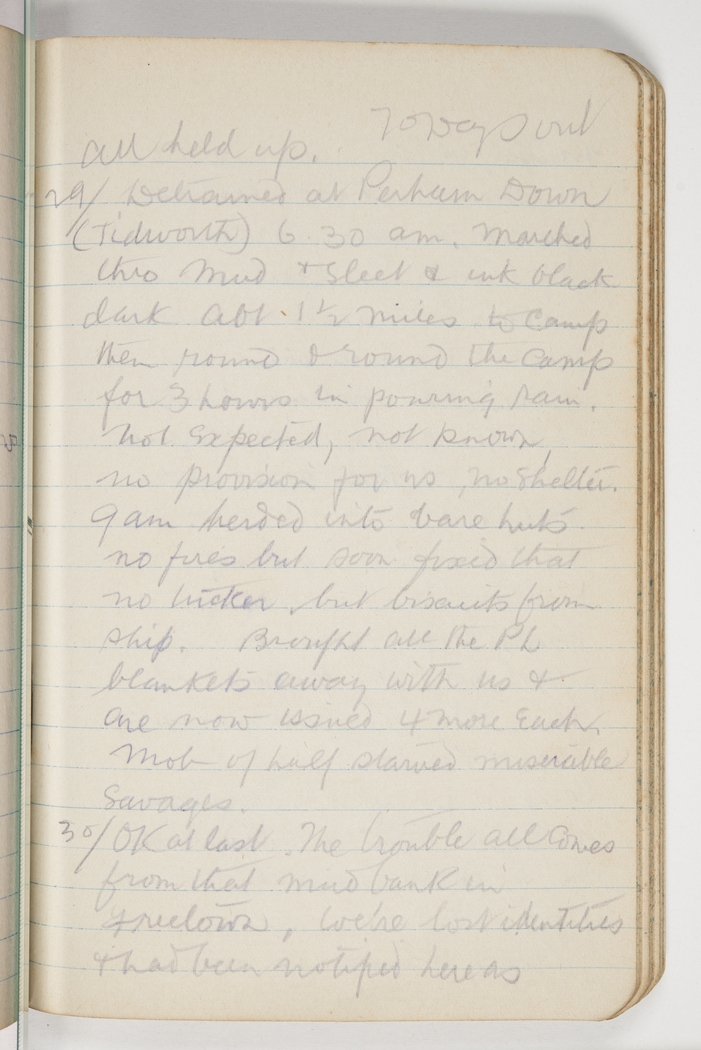 70 Days out
all held up.
29/ Detrained at Perham Down
(Tidworth) 6.30 am. Marched
thro Mud & Sleet & ink black
dark abt 1 1/2 miles to Camp
then round & round the Camp
for 3 hours in pouring rain.
Not Expected, not known,
no provision for us, no shelter.
9 am herded into bare huts.
no fires but soon fixed that
no tucker but biscuits from
ship. Brought all the PL
blankets away with us &
are now issued 4 more Each.
Mob of half starved miserable
Savages.
30/ OK at last. The trouble all Comes
from that mud bank in
Freetown, we're lost identities
& had been notified here as